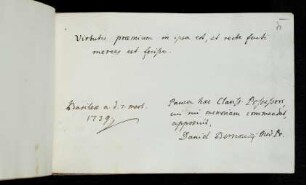 Virtutis præmium in ipsa est, et recte facti
merces est fecisse.
Basileæ a. d. 7
1739
Pauca hæc Clariss. Possessori,
cui me memoriam commendat,
apposuit,
Daniel Bernoulli Med. Pr.